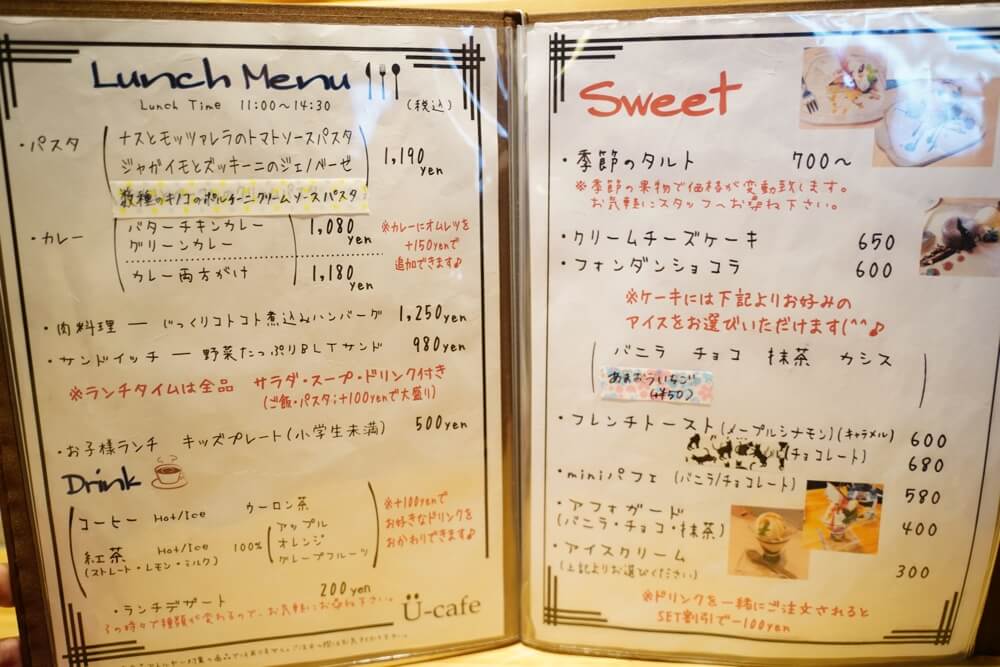 Lunch Menu
Lunch Time 11:00～14:30 (税込)
・パスタ
ナスとモッツァレラのトマトソースパスタ
ジャガイモとズッキーニのジェノベーゼ
数種のキノコのポルチーニクリームソースパスタ
1,190 yen
・カレー
バターチキンカレー
グリーンカレー
1,080 yen
カレー両方がけ 1,180 yen
※カレーにオムレツを
+150yenで
追加できます♪
・肉料理 ー じっくりコトコト煮込みハンバーグ 1,250yen
・サンドイッチ ー 野菜たっぷりBLTサンド 980yen
※ランチタイムは全品 サラダ・スープ・ドリンク付き
(ご飯・パスタ;+100yenで大盛り)
・お子様ランチ キッズプレート(小学生未満) 500yen
Drink
コーヒー Hot/Ice ウーロン茶
紅茶 Hot/Ice
(ストレート・レモン・ミルク)
100%
アップル
オレンジ
グレープフルーツ
※+100yenで
お好きなドリンクを
おかわりできます♪
・ランチデザート 200yen
その時々で種類が変わるので、お気軽にお尋ね下さい。
Ü-cafe
Sweet
・季節のタルト 700～
※季節の果物で価格が変動致します。
お気軽にスタッフへお尋ね下さい。
・クリームチーズケーキ 650
・フォンダンショコラ 600
※ケーキには下記よりお好みの
アイスをお選びいただけます(^^♪
バニラ チョコ 抹茶 カシス
あまおういちご
(+¥50)
・フレンチトースト(メープルシナモン)(キャラメル) 600
(チョコレート) 680
・miniパフェ (バニラ/チョコレート) 580
・アフォガード
(バニラ・チョコ・抹茶) 400
・アイスクリーム
(上記よりお選びください) 300
※ドリンクを一緒にご注文されると
SET割引で-100yen